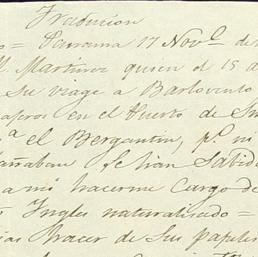 Traduccion
= Sarrama 17 Novᵉ. de
M. Martinez quien el 15 d
su viage a Barlovento
asageros en el Puerto de S
ᵃ el Bergantin, pᵒ. ni
añaban se han Sabid
a mi hacerme Cargo de
Ingles naturalisado =
hacer de sus papeles